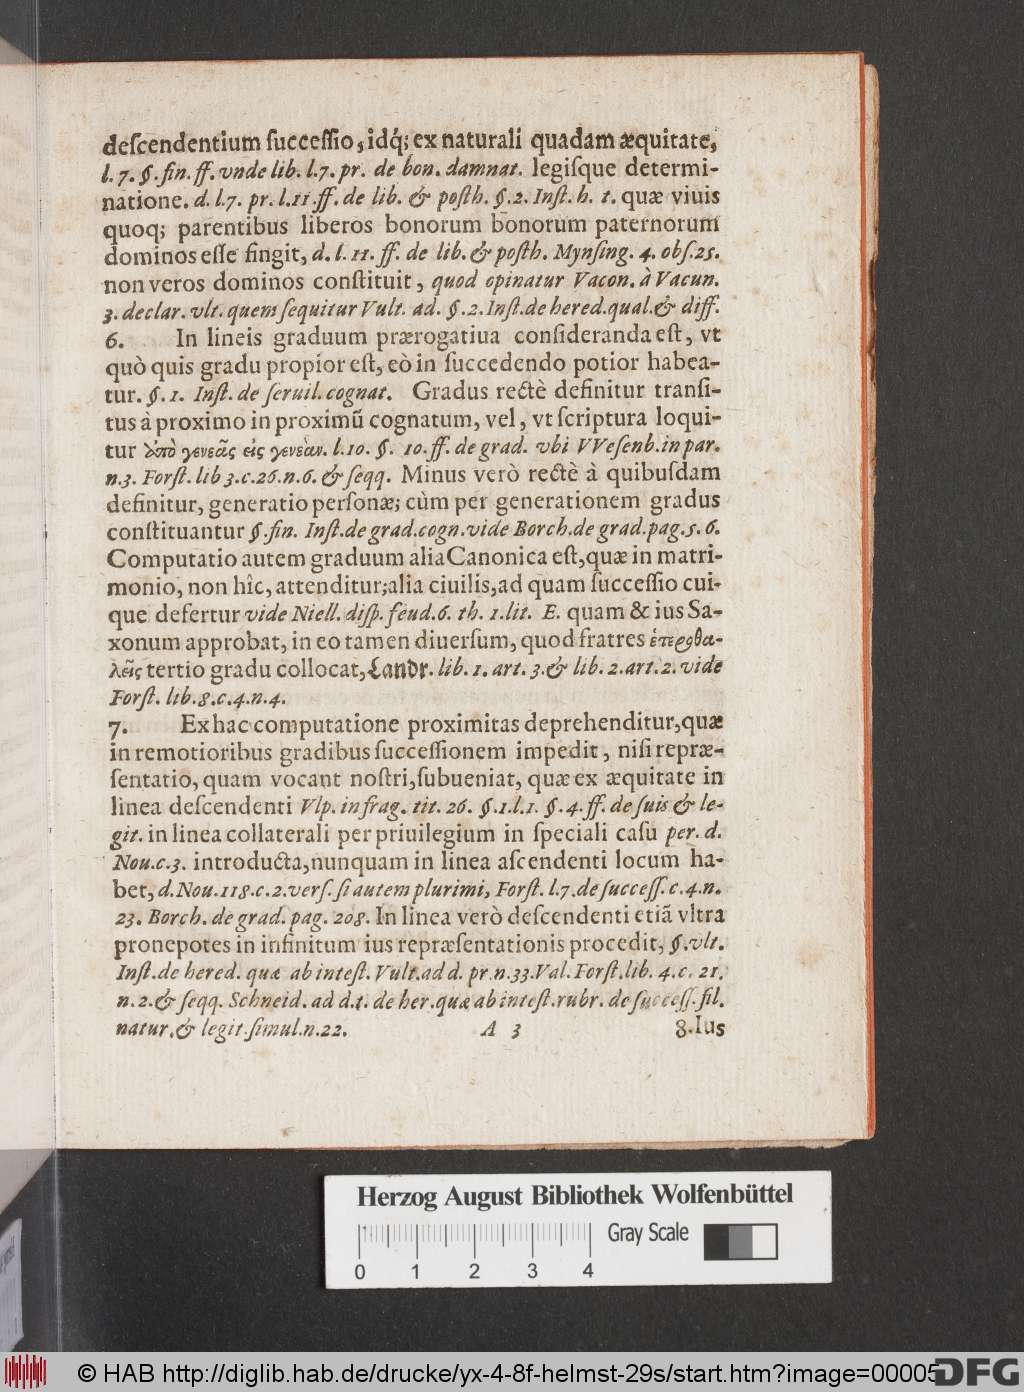 deſcendentium ſucceſſio, idq́; ex naturali quadam æquitate,
l. 7. §. fin. ff. vnde lib. l. 7. pr. de bon. damnat. legiſque determi-
natione. d. l. 7. pr. l. 11. ff. de lib. & poſth. §. 2. Inſt. h. t. quæ viuis
quoq; parentibus liberos bonorum bonorum paternorum
dominos eſſe fingit, d. l. 11. ff. de lib. & poſth. Mynſing. 4. obſ. 25.
non veros dominos conſtituit, quod opinatur Vacon. à Vacun.
3. declar. vlt. quem ſequitur Vult. ad. §. 2. Inſt. de hered. qual. & diff.
6. In lineis graduum prærogatiua conſideranda eſt, vt
quò quis gradu propior eſt, eò in ſuccedendo potior habea-
tur. §. 1. Inſt. de ſeruil. cognat. Gradus rectè definitur tranſi-
tus à proximo in proximũ cognatum, vel, vt ſcriptura loqui-
tur ἀπὸ γενεᾶς εἰς γενεὰν. l. 10. §. 10. ff. de grad. vbi VVeſenb. in par.
n. 3. Forſt. lib 3. c. 26. n. 6. & ſeqq. Minus verò rectè à quibuſdam
definitur, generatio perſonæ; cùm per generationem gradus
conſtituantur §. fin. Inſt. de grad. cogn. vide Borch. de grad. pag. 5. 6.
Computatio autem graduum alia Canonica eſt, quæ in matri-
monio, non hîc, attenditur; alia ciuilis, ad quam ſucceſſio cui-
que defertur vide Niell. diſp. feud. 6. th. 1. lit. E. quam & ius Sa-
xonum approbat, in eo tamen diuerſum, quod fratres ἑτεροθα-
λεῖς tertio gradu collocat, Landr. lib. 1. art. 3. & lib. 2. art. 2. vide
Forſt. lib. 8. c. 4. n. 4.
7. Ex hac computatione proximitas deprehenditur, quæ
in remotioribus gradibus ſucceſſionem impedit, niſi repræ-
ſentatio, quam vocant noſtri, ſubueniat, quæ ex æquitate in
linea deſcendenti Vlp. in frag. tit. 26. §. 1. l. 1. §. 4. ff. de ſuis & le-
git. in linea collaterali per priuilegium in ſpeciali caſu per. d.
Nou. c. 3. introducta, nunquam in linea aſcendenti locum ha-
bet, d. Nou. 118. c. 2. verſ. ſi autem plurimi, Forſt. l. 7. de ſucceſſ. c. 4. n.
23. Borch. de grad. pag. 208. In linea verò deſcendenti etiã vltra
pronepotes in infinitum ius repræſentationis procedit, §. vlt.
Inſt. de hered. quæ ab inteſt. Vult. ad d. pr. n. 33. Val. Forſt. lib. 4. c. 21.
n. 2. & ſeqq. Schneid. ad d. t. de her. quæ ab inteſt. rubr. de ſucceſſ. fil.
natur. & legit. ſimul. n. 22. A 3 8. Ius
Herzog August Bibliothek Wolfenbüttel
Gray Scale
0 1 2 3 4
© HAB http://diglib.hab.de/drucke/yx-4-8f-helmst-29s/start.htm?image=00005
DFG